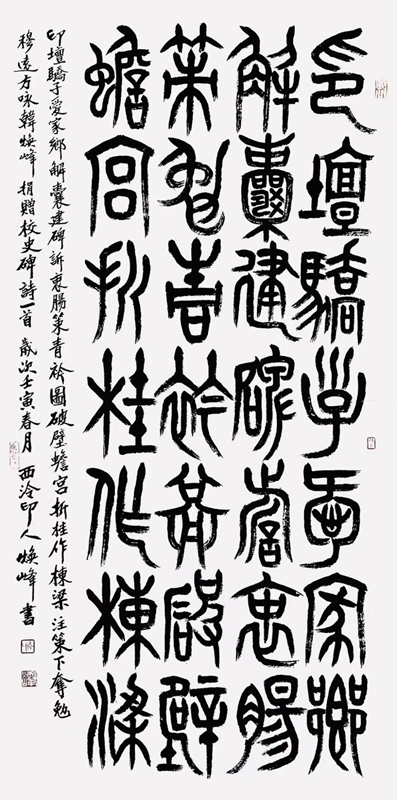 印壇驕子愛家鄉
解囊建碑訴衷腸
策勉青衿圖破壁
蟾宮折桂作棟梁
印壇驕子愛家鄉解囊建碑訴衷腸策青衿圖破壁蟾宮折桂作棟梁 注策下奪勉
穆遠方咏韓煥峰 捐贈校史碑詩一首 歲次壬寅春月 西泠印人煥峰書